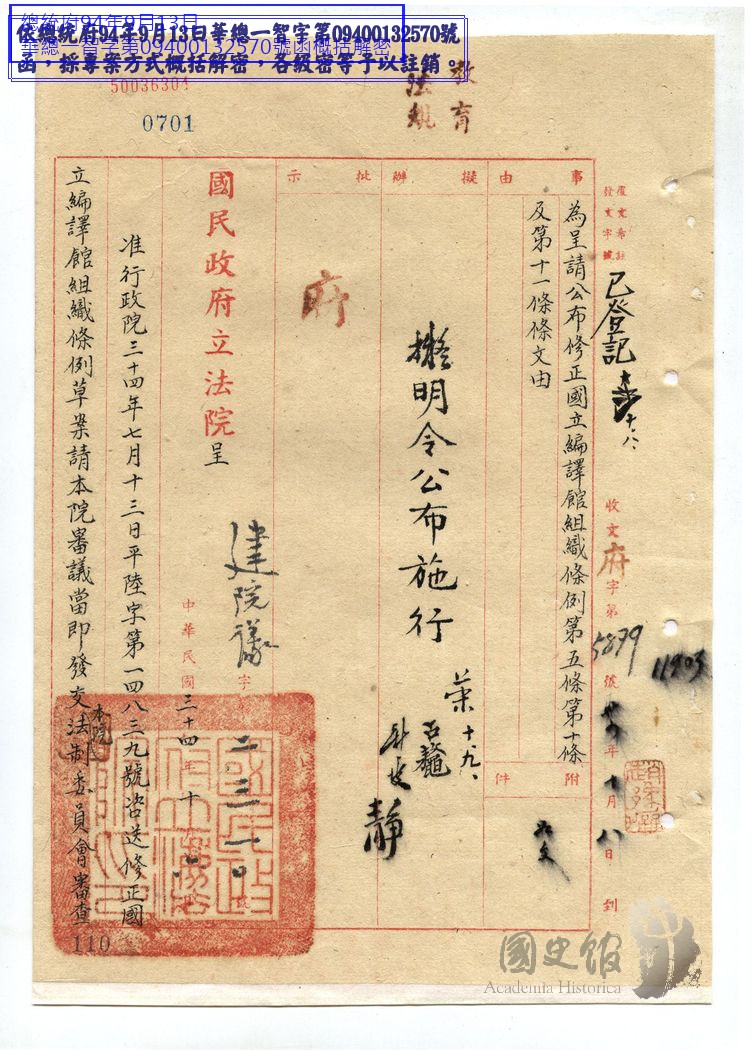 總統府94年9月13日
華總一智字第09400132570號函概括解密
依總統府94年9月13日華總一智字第09400132570號
函，採專案方式概括解密，各級密等予以註銷。
50036304
0701
教育
法規
覆文希註
發文字號
已登記
十八
收文府字第5879號
卅四年十月八日到
11903
事由
為呈請公布修正國立編譯館組織條例第五條第十條
及第十一條條文由
附件
如文
擬辦
擬明令公布施行
十、九、
靜
批示
府
國民政府立法院呈
建院議字
二三一〇
號
中華民國三十四年十
准行政院三十四年七月十三日平陸字第一四八三九號咨送修正國
立編譯館組織條例草案請本院審議當即發交本院法制委員會審查
110
國史館
Academia Historica